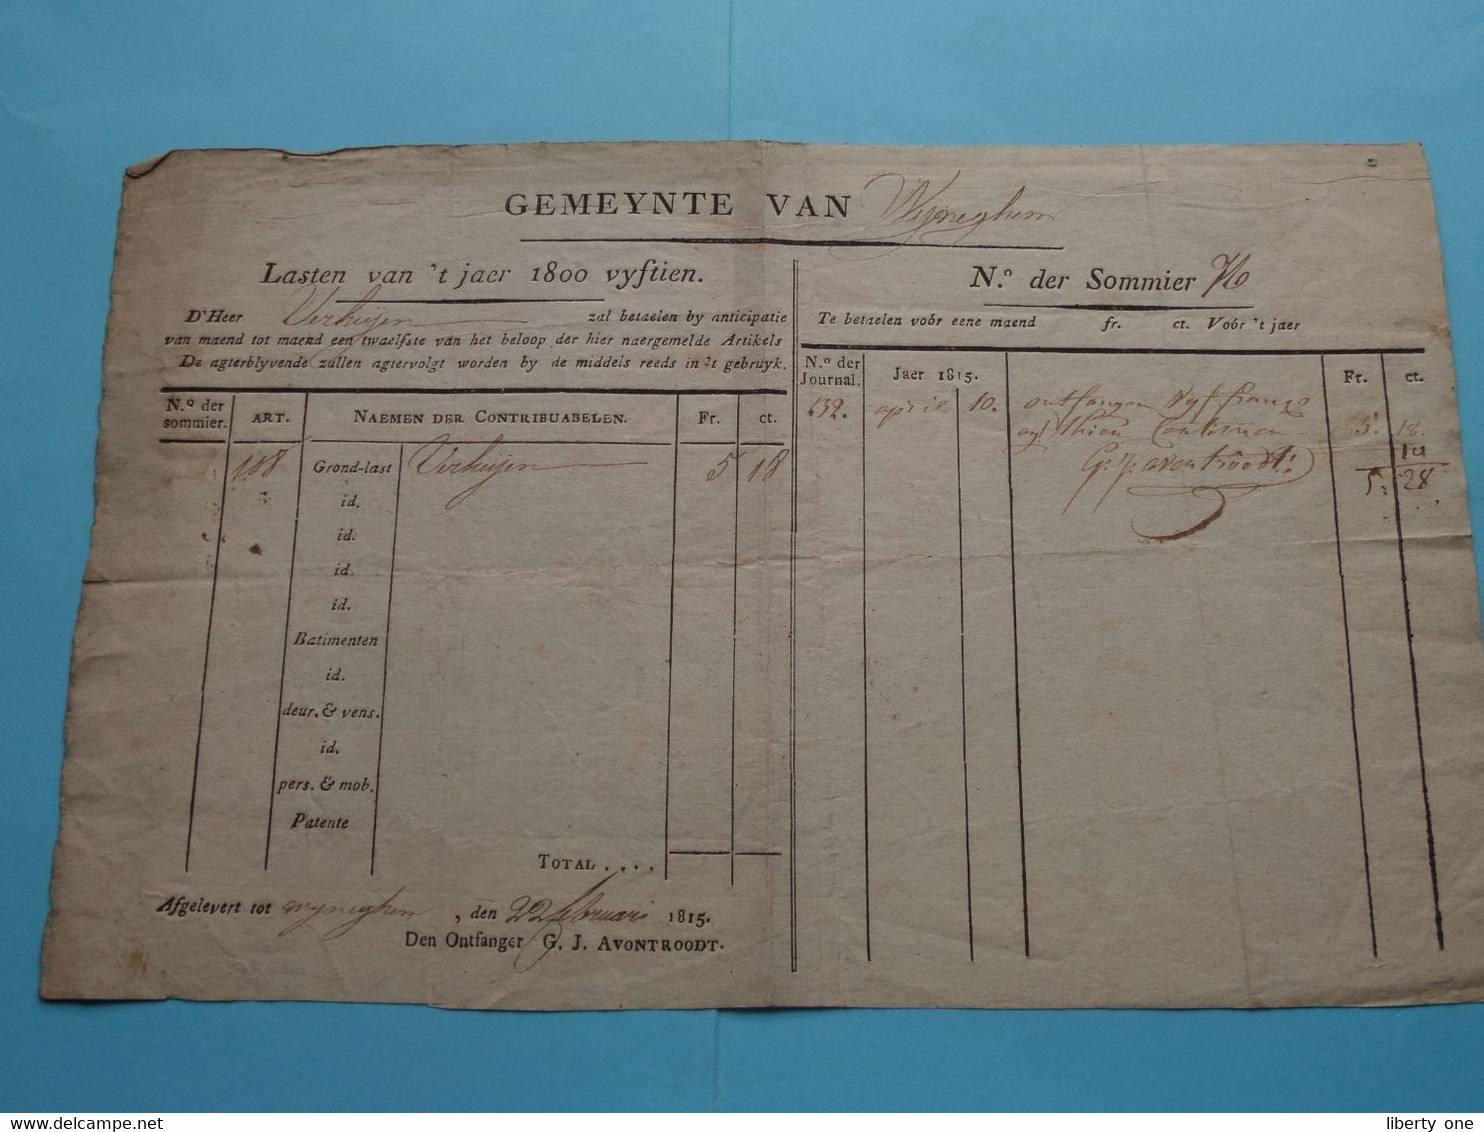 GEMEYNTE VAN Wyneghem
Lasten van 't jaer 1800 vyftien.
D'Heer Verheijen zal betaelen by anticipatie
van maend tot maend een twaelfste van het beloop der hier naergemelde Artikels
De agterblyvende zullen agtervolgt worden by de middels reeds in 't gebruyk.
N.º der sommier. ART. NAEMEN DER CONTRIBUABELEN. Fr. ct.
108 Grond-last Verheijen 5 18
id.
id.
id.
id.
Batimenten
id.
deur. & vens.
id.
pers. & mob.
Patente
TOTAL . . . .
Afgelevert tot wyneghem, den 22 februari 1815.
Den Ontfanger G. J. AVONTROODT.
N.º der Sommier 76
Te betaelen voór eene maend fr. ct. Voór 't jaer
N.º der Journal. Jaer 1815. Fr. ct.
632. april 10. ontfangen vyf francs
agt thien Centimen 5. 18.
G: J: avontroodt. 10
5: 28
liberty one